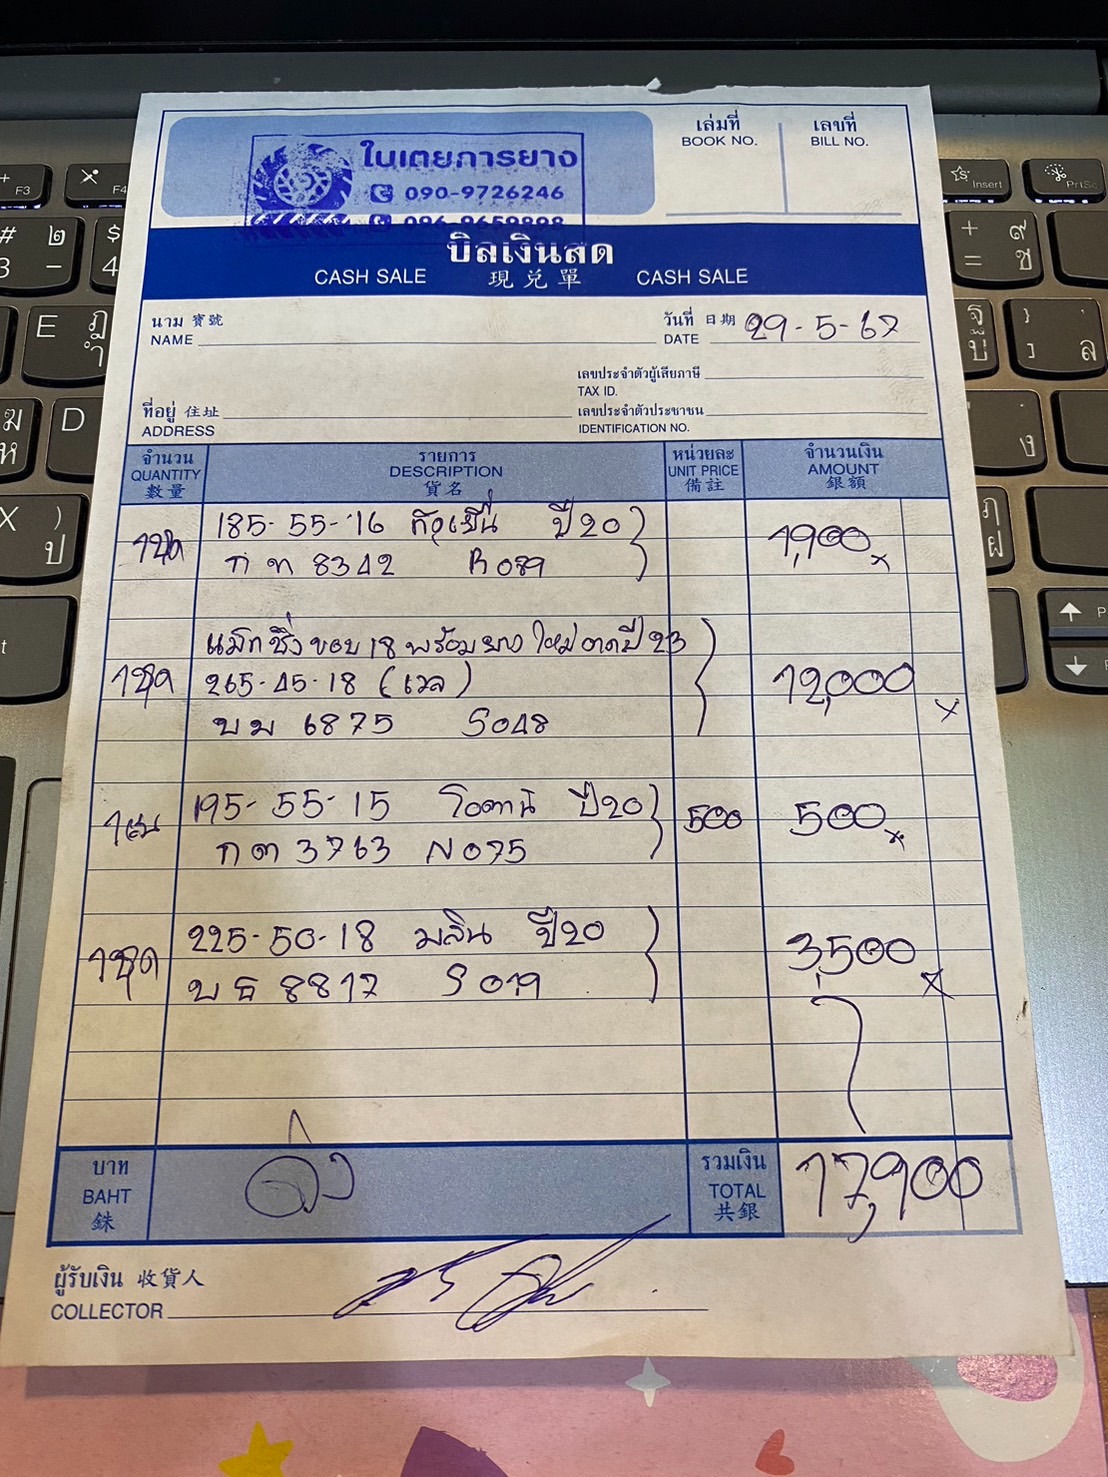 ใบเตยการยาง
090-9726246
096-9659898
เล่มที่
BOOK NO.
เลขที่
BILL NO.
บิลเงินสด
CASH SALE 現兌單 CASH SALE
นาม 寳號
NAME
วันที่ 日期 29-5-67
DATE
เลขประจำตัวผู้เสียภาษี
TAX ID.
ที่อยู่ 住址
ADDRESS
เลขประจำตัวประชาชน
IDENTIFICATION NO.
จำนวน รายการ หน่วยละ จำนวนเงิน
QUANTITY DESCRIPTION UNIT PRICE AMOUNT
數量 貨名 備註 銀額
1ชุด 185-55-16 ปี 20 1,900
กท 8342 R089
แม็ก ซิ่ง ขอบ 18 พร้อมยาง ใหม่ ปี 23
1ชุด 265-45-18 (เวล) 12,000
บม 6875 S048
1เส้น 195-55-15 โอตานิ ปี20 500 500
กต 3763 N075
1ชุด 225-50-18 มลิน ปี20 3,500
บธ 8817 S019
บาท
BAHT
銖
รวมเงิน
TOTAL
共銀
17,900
ผู้รับเงิน 收貨人
COLLECTOR
+
F3
F4
Insert
PrtSc
# ๒
3 -
$
4
+ ๙
= ช
E ฎ
ำ
D
X )
ป